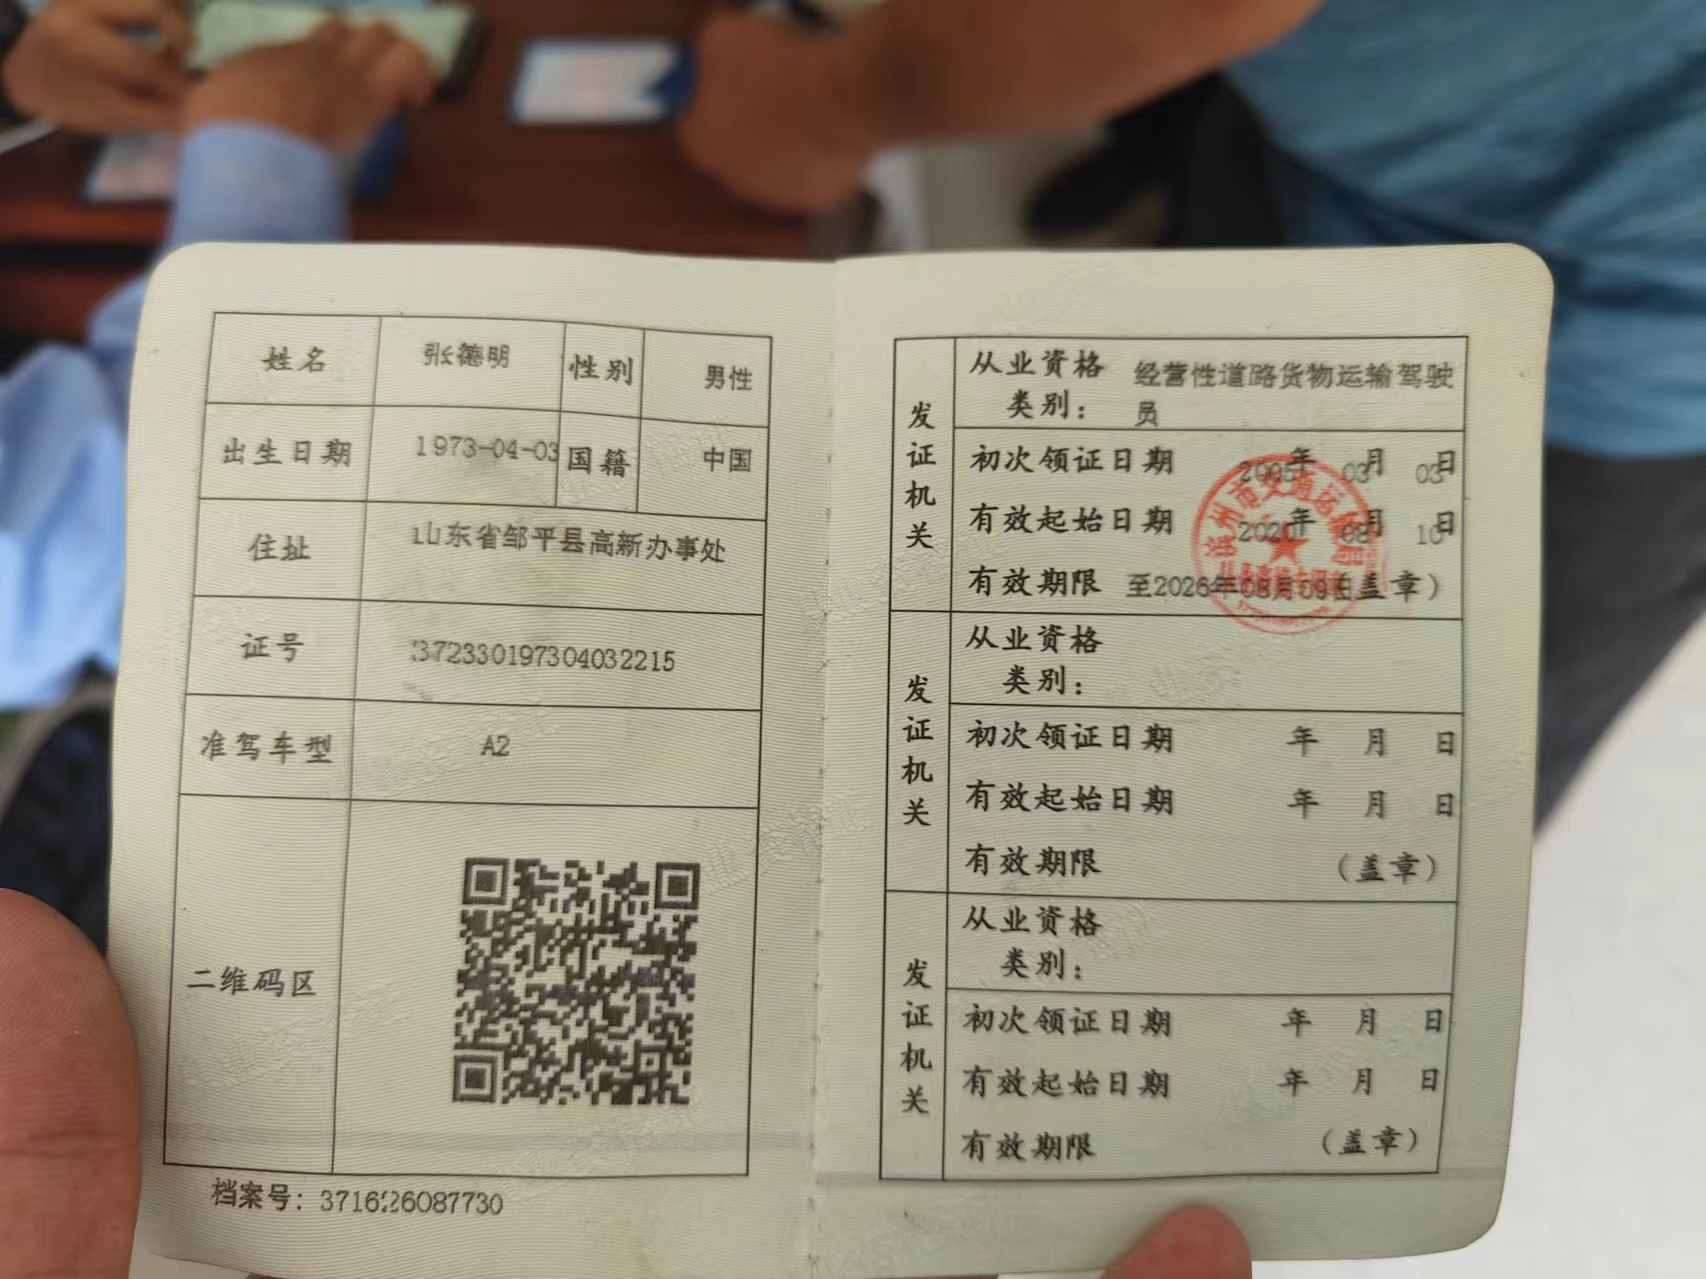 姓名 张德明 性别 男性
出生日期 1973-04-03 国籍 中国
住址 山东省邹平县高新办事处
证号 372330197304032215
准驾车型 A2
二维码区
档案号：3716226087730
发证机关
从业资格类别： 经营性道路货物运输驾驶员
初次领证日期 2005年 03月 03日
有效起始日期 2020年 08月 10日
有效期限 至2026年08月09日（盖章）
滨州市交通运输局
发证机关
从业资格类别：
初次领证日期 年 月 日
有效起始日期 年 月 日
有效期限 （盖章）
发证机关
从业资格类别：
初次领证日期 年 月 日
有效起始日期 年 月 日
有效期限 （盖章）